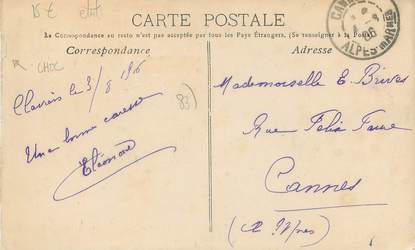 15 € etat
CARTE POSTALE
La Correspondance au recto n'est pas acceptée par tous les Pays Étrangers. (Se renseigner à la Poste)
Correspondance
Adresse
CHOC
83
le 3/8 1906
Une bonne caresse
Eléonore
Mademoiselle E. Brives
Rue Félix Faure
Cannes
(A. Mmes)
CANNES
ALPES MARMES